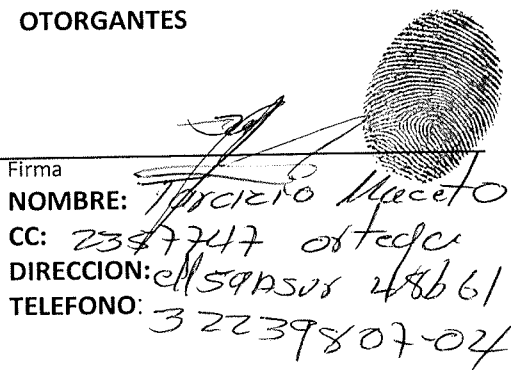 OTORGANTES
Firma
NOMBRE: Tarcizio Maceto
CC: 2387747 ortega
DIRECCION: cll 59A sur 48b 61
TELEFONO: 32239807-04